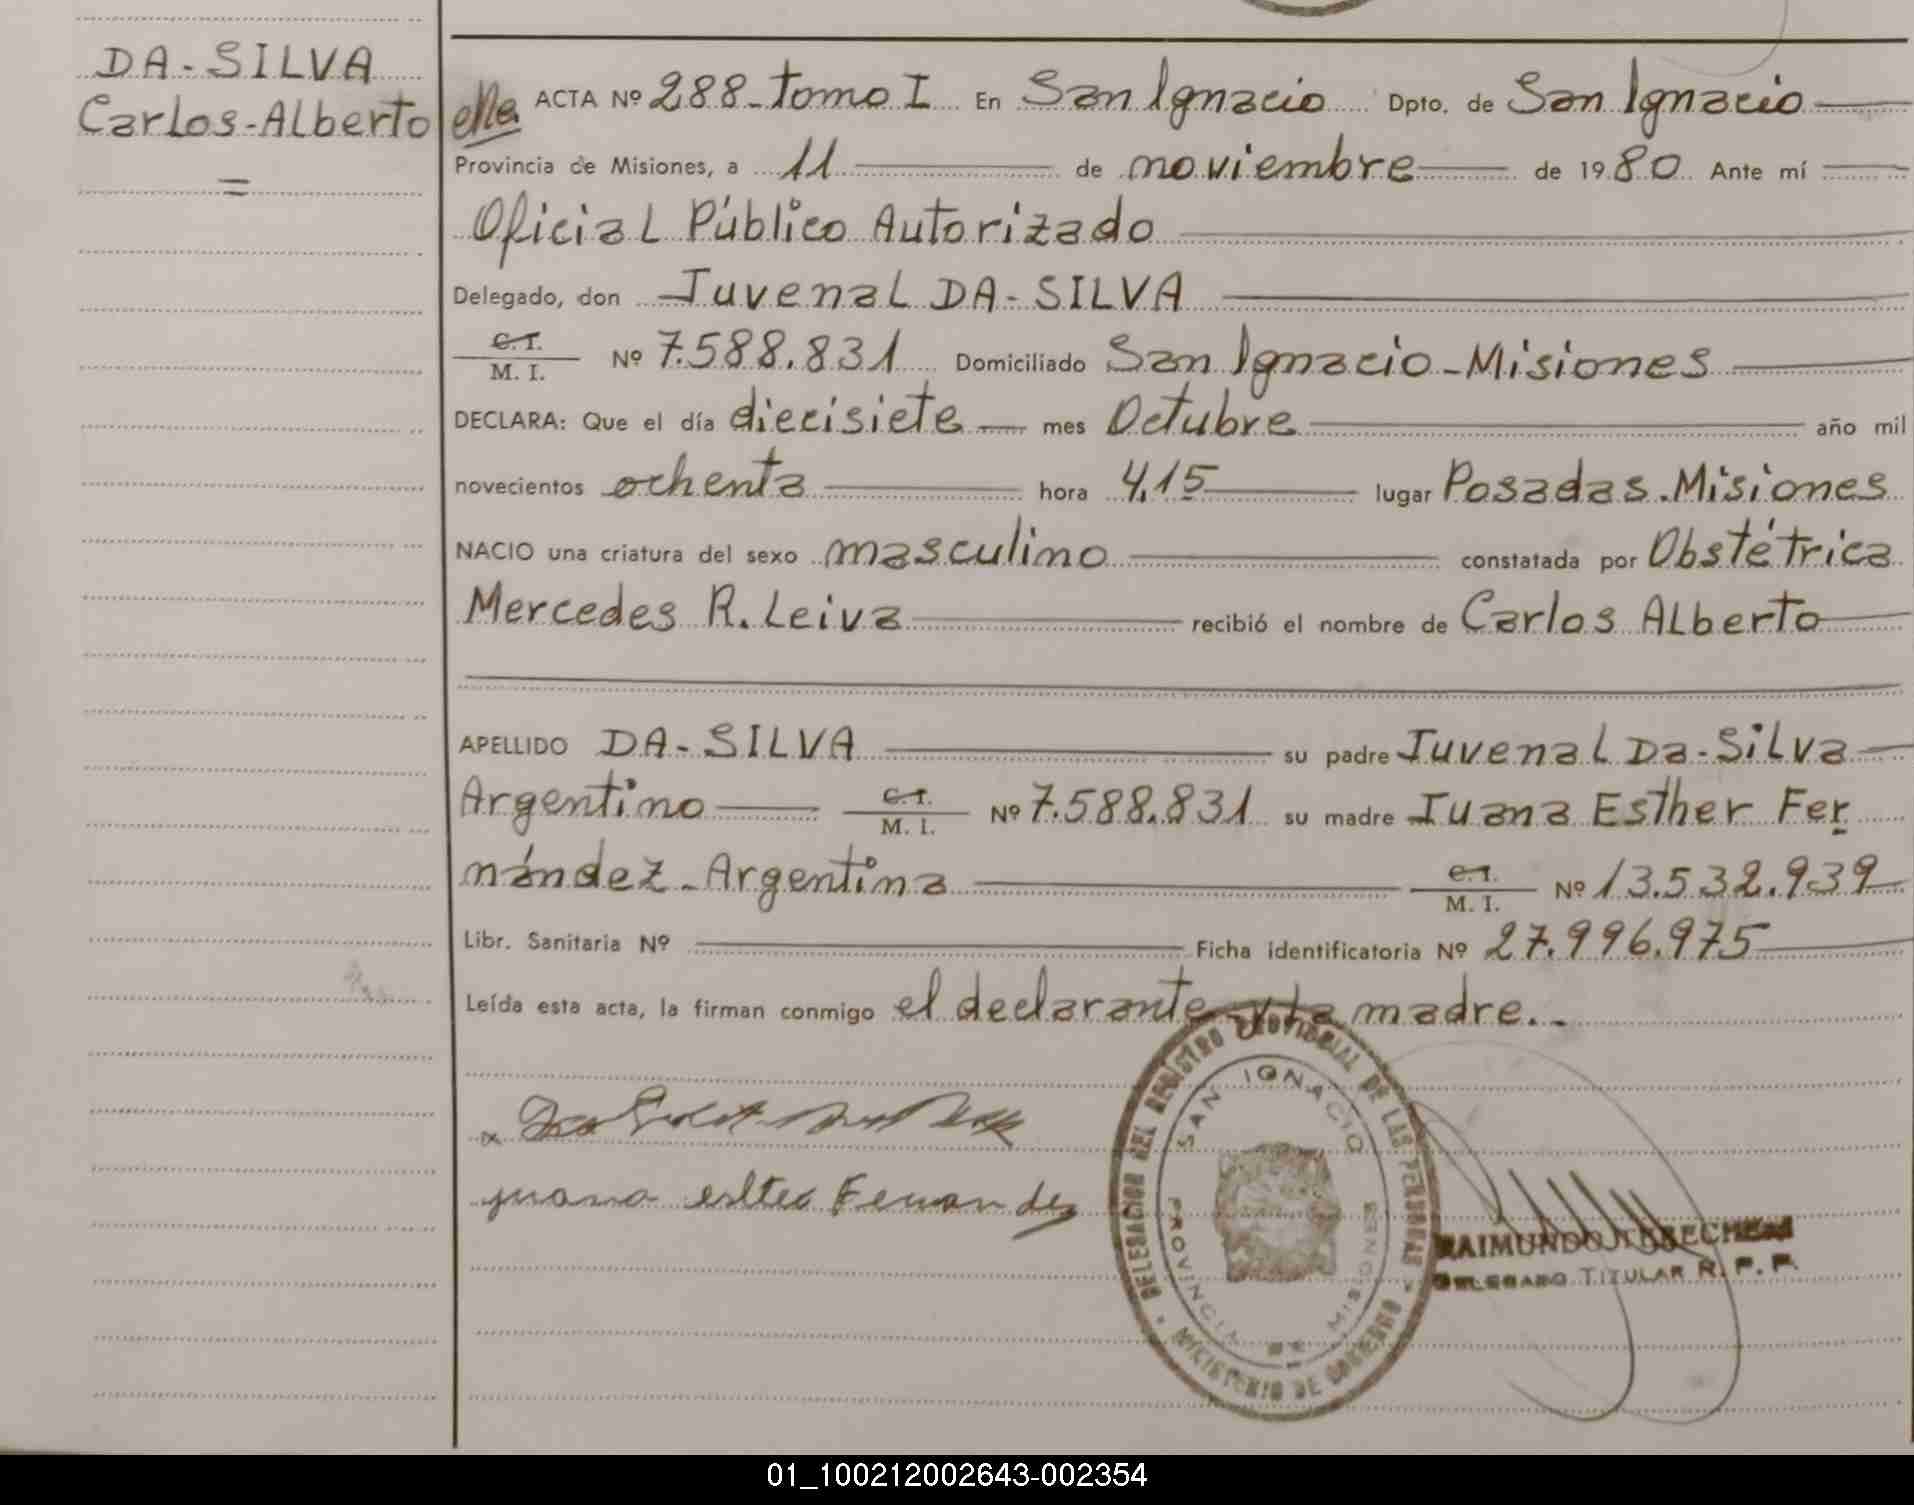 DA-SILVA
Carlos-Alberto
=
ACTA Nº 288-tomo I En San Ignacio Dpto. de San Ignacio
Provincia de Misiones, a 11 de noviembre de 1980 Ante mí
Oficial Público Autorizado
Delegado, don Juvenal DA-SILVA
C.I.
M. I. Nº 7.588.831 Domiciliado San Ignacio-Misiones
DECLARA: Que el día diecisiete mes Octubre año mil
novecientos ochenta hora 4,15 lugar Posadas-Misiones
NACIO una criatura del sexo masculino constatada por Obstétrica
Mercedes R. Leiva recibió el nombre de Carlos Alberto
APELLIDO DA-SILVA su padre Juvenal Da-Silva
Argentino C.I. M. I. Nº 7.588.831 su madre Juana Esther Fer
nández-Argentina C.I. M. I. Nº 13.532.939
Libr. Sanitaria Nº Ficha identificatoria Nº 27.996.975
Leída esta acta, la firman conmigo el declarante y la madre..
juana Fernandez
DELEGACION DEL REGISTRO PROVINCIAL DE LAS PERSONAS
MINISTERIO DE GOBIERNO
SAN IGNACIO
PROVINCIA DE MISIONES
RAIMUNDO
DELEGADO TITULAR R. P. P.
01_100212002643-002354